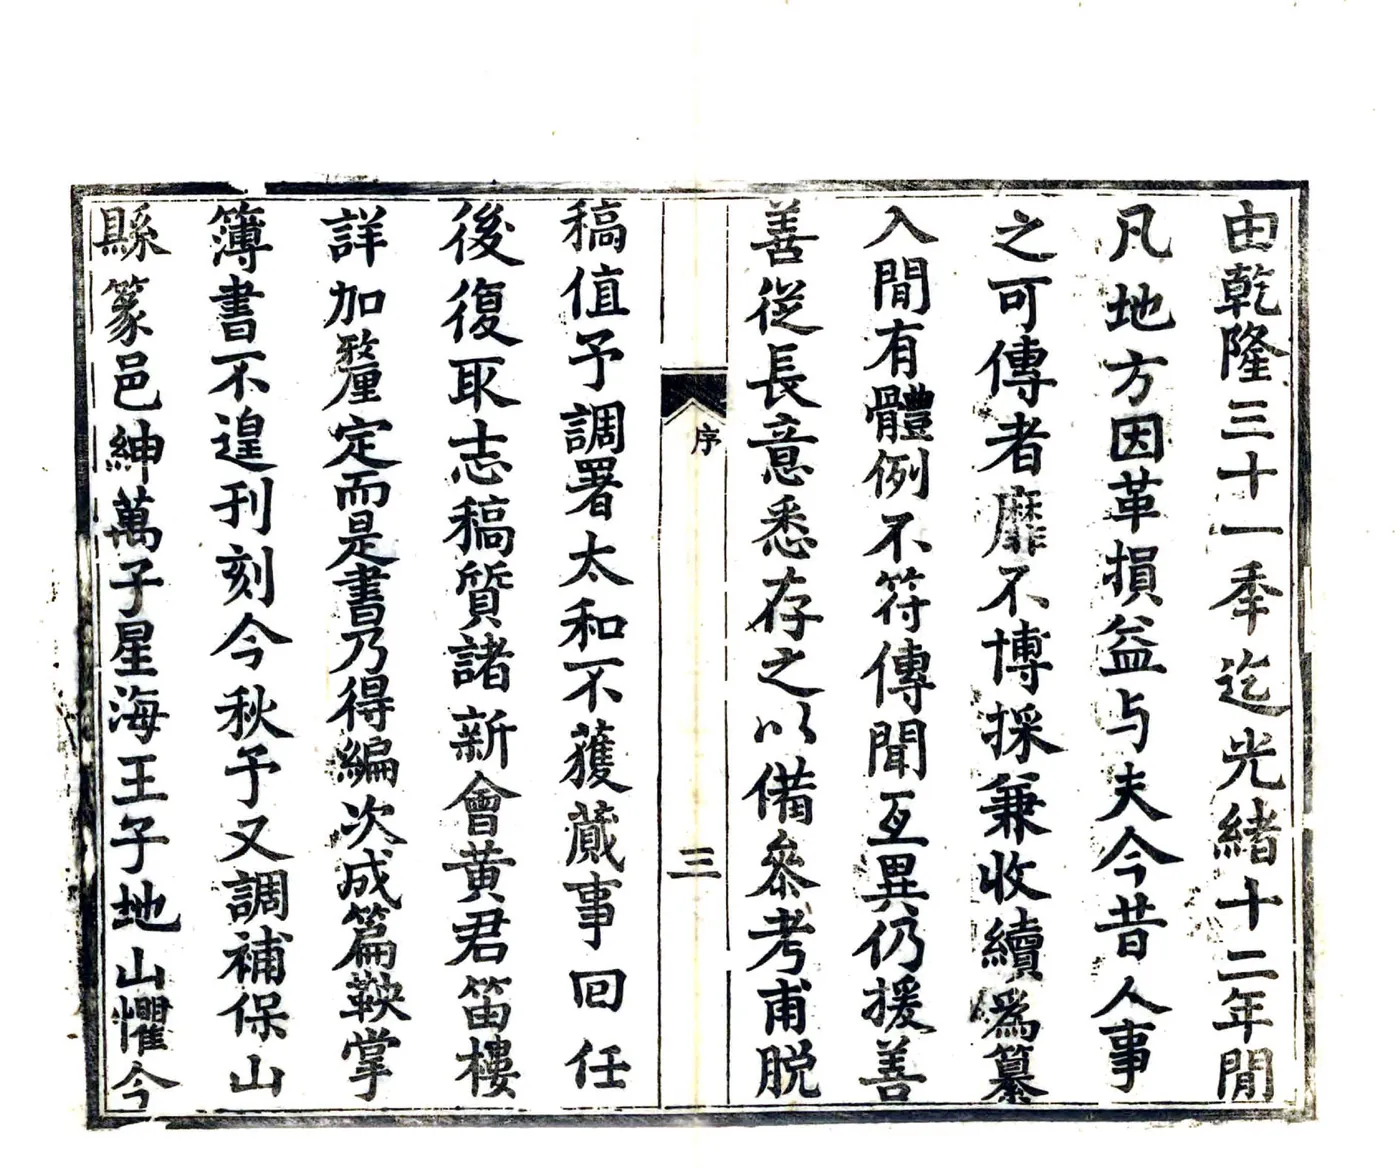 由乾隆三十一季迄光緒十二年閒
凡地方因革損益与夫今昔人事
之可傳者靡不博採兼收續爲纂
入閒有體例不符傳聞互異仍援善
善從長意悉存之以備叅考甫脱
序
三
稿值予調署太和不獲蕆事回任
後復取志稿質諸新會黄君笛樓
詳加釐定而是書乃得編次成篇鞅掌
簿書不遑刊刻今秋予又調補保山
縣篆邑紳萬子星海王子地山懼今